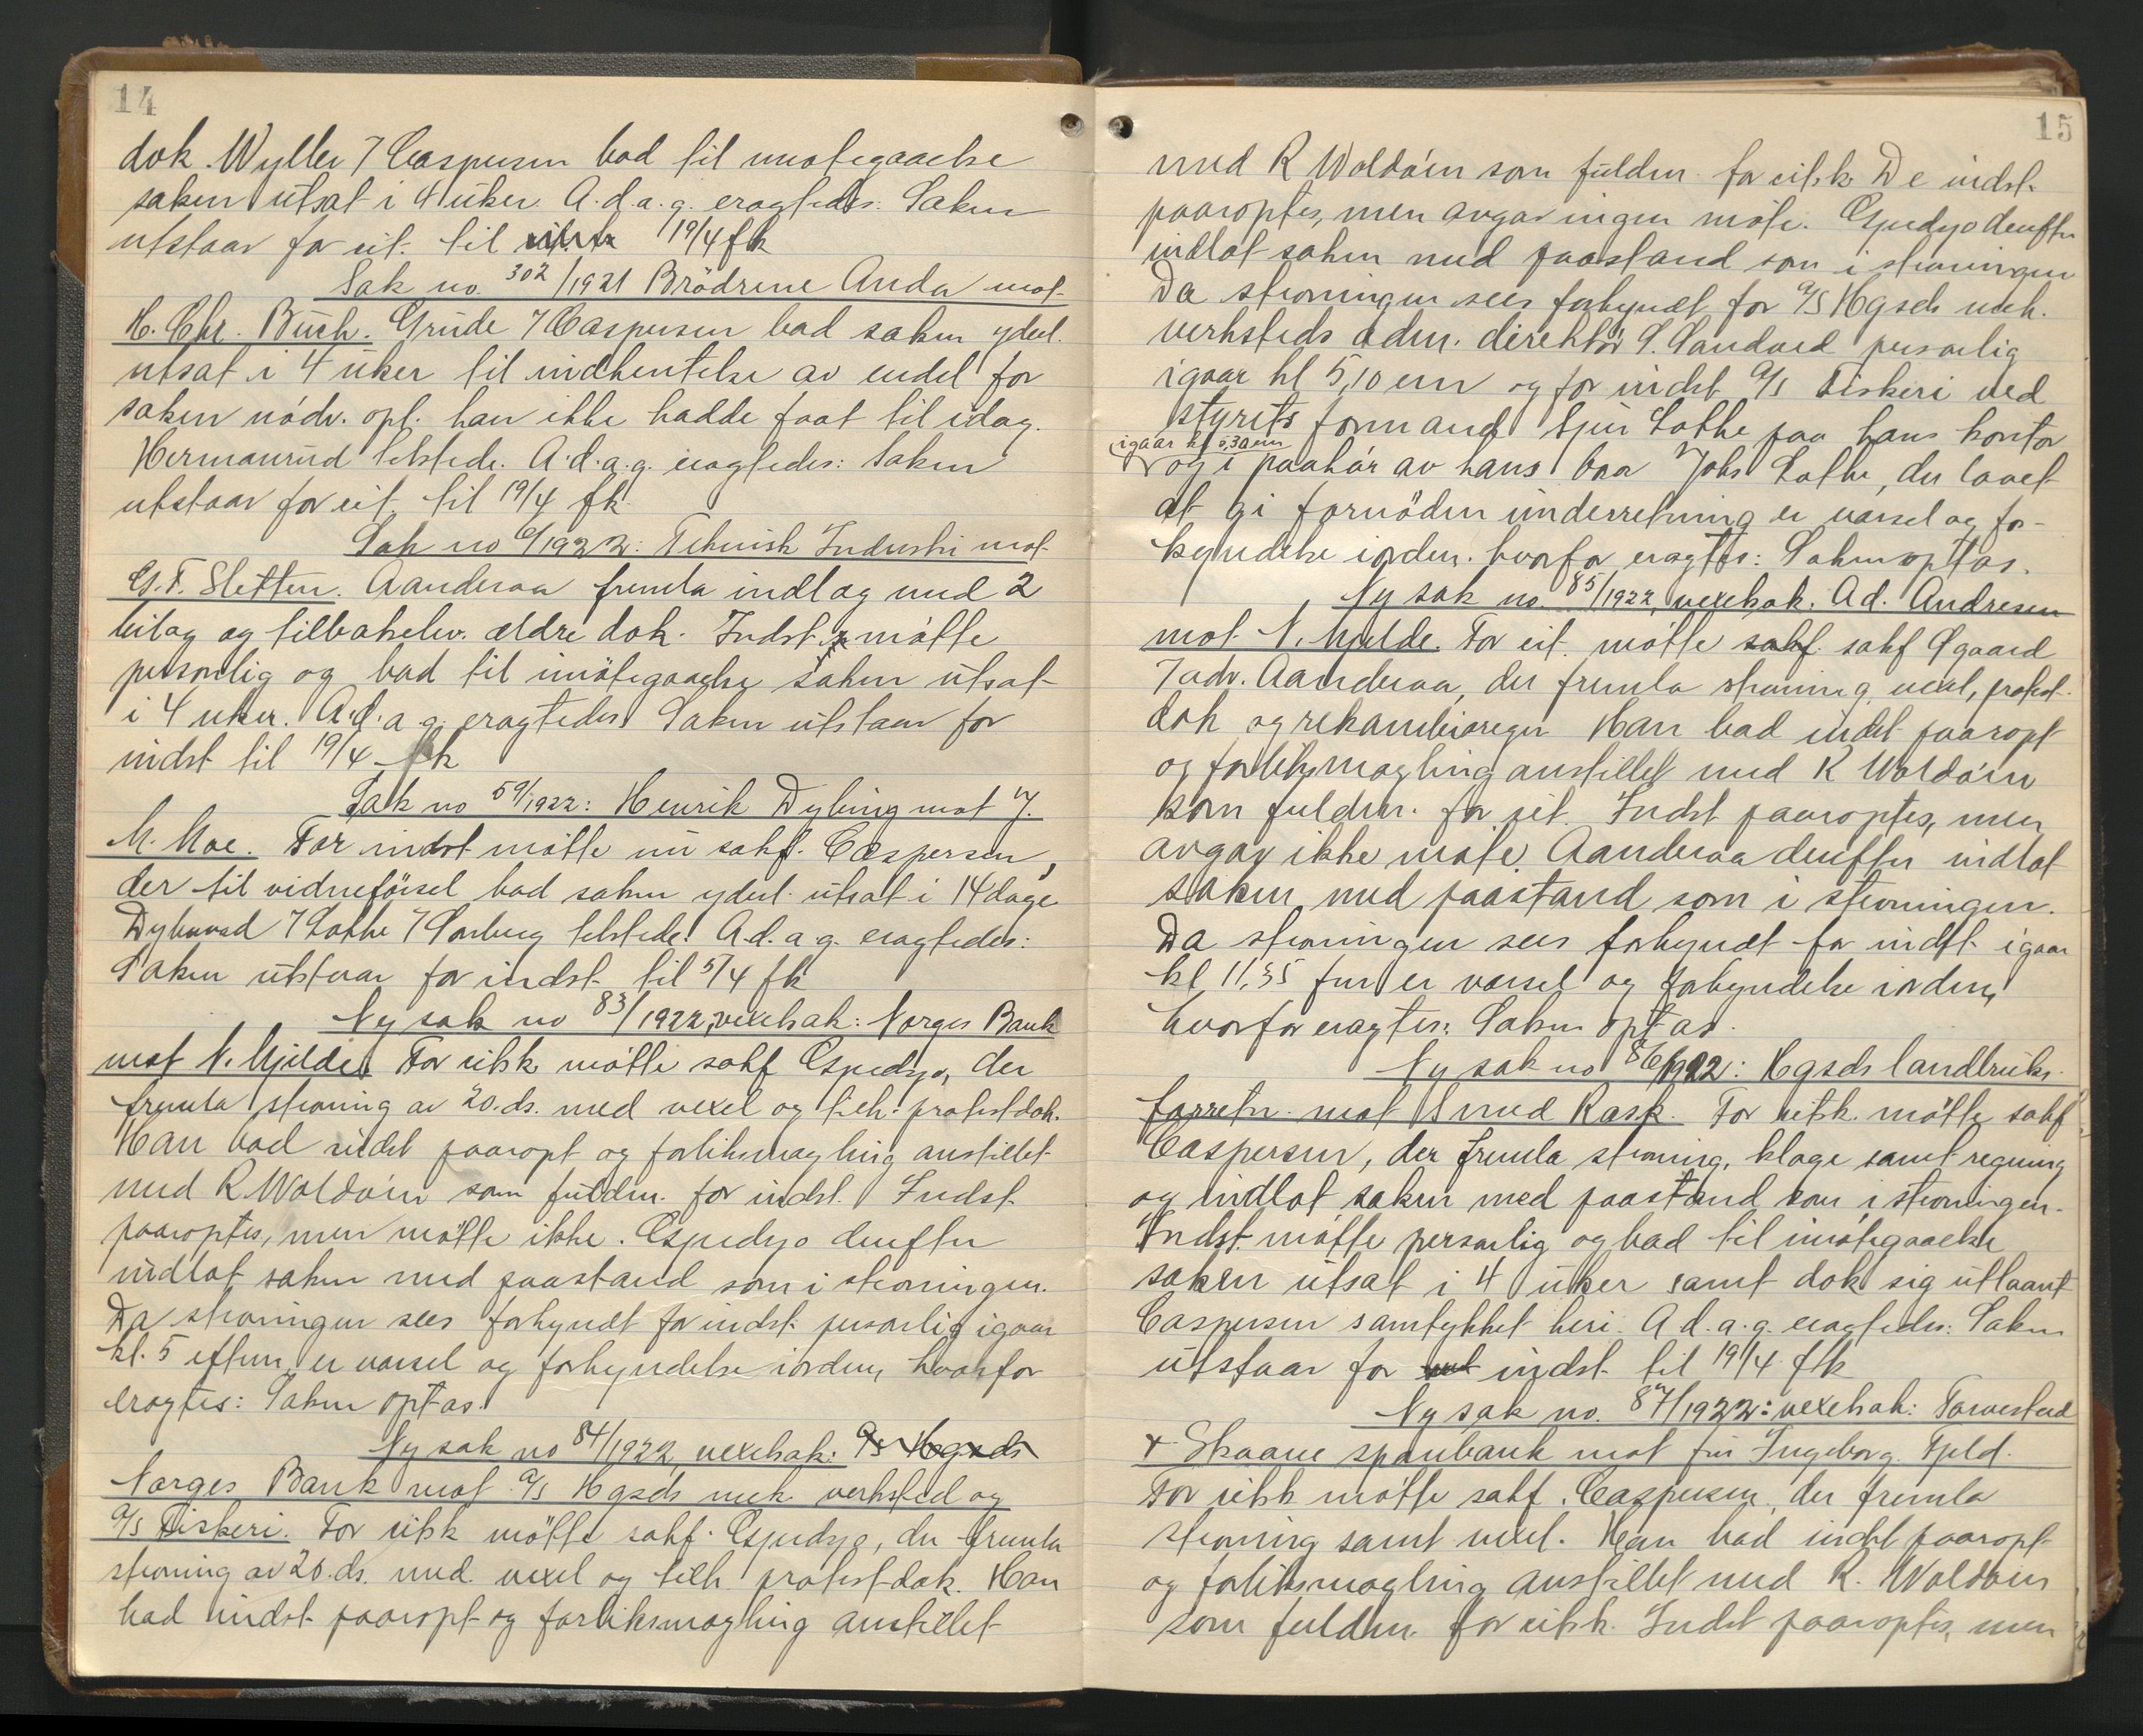 14
dok. Wyller 7 Caspersen bad til imøtegaaelse
saken utsat i 4 uker. A.d.a.g. eragtedes: Saken
utstaar for cit. til 19/4 fk
Sak no. 302/1921 Brödrene Anda mot
H. Chr. Buch. Grude 7 Caspersen bad saken yderl.
utsat i 4 uker til indhentelse av endel for
saken nödv. opl. han ikke hadde faat til idag.
Hermanrud tilstede. A.d.a.g. eragtedes: Saken
utstaar for cit. til 19/4 fk.
Sak no 6/1922: Teknisk Industri mot
G.F. Sletten. Aanderaa fremla indlæg med 2
bilag og tilbakelev. ældre dok. Indst. mötte
personlig og bad til imötegaaelse saken utsat
i 4 uker. A.d.a.g. eragtedes Saken utstaar for
indst til 19/4 fk
Sak no 59/1922: Henrik Dybing mot J.
M. Moe. For indst mötte nu sakf. Caspersen,
der til vidneförsel bad saken yderl. utsat i 14 dage
Dybwad 7 Lothe 7 Sorberg tilstede. A.d.a.g. eragtedes:
Saken utstaar for indst. til 5/4 fk
Ny sak no 83/1922, vexelsak: Norges Bank
mot N. Mjelde. For citsk. mötte sakf Espedjo, der
fremla stevning av 20. ds. med vexel og tilh. protestdok.
Han bad indst paaropt og forliksmægling anstillet
med R Waldøin som fuldm. for indst. Indst.
paaroptes, men mötte ikke. Espedjo derefter
indlot saken med paastand som i stevningen.
Da stevningen sees forkyndt for indst. personlig igaar
kl. 5 efterm, er varsel og forkyndelse iorden, hvorfor
eragtes: Saken optas.
Ny sak no 84/1922, vexelsak: A/s Hgsds
Norges Bank mot A/s Hgsds mek. verksted og
A/s Fiskeri. For citsk mötte sakf. Espedjo, der fremla
stevning av 20. ds. med vexel og tilh. protestdok. Han
bad indst paaropt og forliksmægling anstillet
15
med R Woldøin som fuldm. for citsk De indst.
paaroptes, men avgav ingen möte. Espedjo derefter
indlot saken med paastand som i stevningen
Da stevningen sees forkyndt for A/S Hgsds mek.
verksteds adm. direktör S. Sandved personlig
igaar kl 5,10 em og for indst A/s Fiskeri ved
styrets formand Lothe paa hans kontor
igaar kl 5,30 em
og i paahör av hans bror Johs Lothe, der lovet
at gi fornöden underretning er varsel og for-
kyndelse iorden. hvorfor eragtes: Saken optas.
Ny sak no. 85/1922, vexelsak. Ad. Andresen
mot N. Mjelde. For cit. mötte sakf. sakf Ogaard
7 adv. Aanderaa, der fremla stevning, vexel, protest-
dok og rekambioregn Han bad indst paaropt
og forliksmægling anstillet med R Waldøin
som fuldm. for cit. Indst paaroptes, men
avgav ikke möte. Aanderaa derefter indlot
saken med paastand som i stevningen.
Da stevningen sees forkyndt for indst. igaar
kl. 11,35 fm er varsel og forkyndelse iorden,
hvorfor eragtes: Saken optas.
Ny sak no 86/1922: Hgsds landbruks-
forretn. mot Smed Rask. For citsk. mötte sakf
Caspersen, der fremla stevning, klage samt regning
og indlot saken med paastand som i stevningen.
Indst. mötte personlig og bad til imötegaaelse
saken utsat i 4 uker samt dok sig utlaant
Caspersen samtykket heri. A.d.a.g. eragtedes: Saken
utstaar for indst. til 19/4 fk
Ny sak no. 87/1922: vexelsak: Torvestad
+ Skaare sparebank mot fru Ingeborg Fjeld.
For citsk mötte sakf. Caspersen, der fremla
stevning samt vexel. Han bad indst paaropt
og forliksmægling anstillet med R. Waldøin
som fuldm. for citsk. Indst paaroptes, men